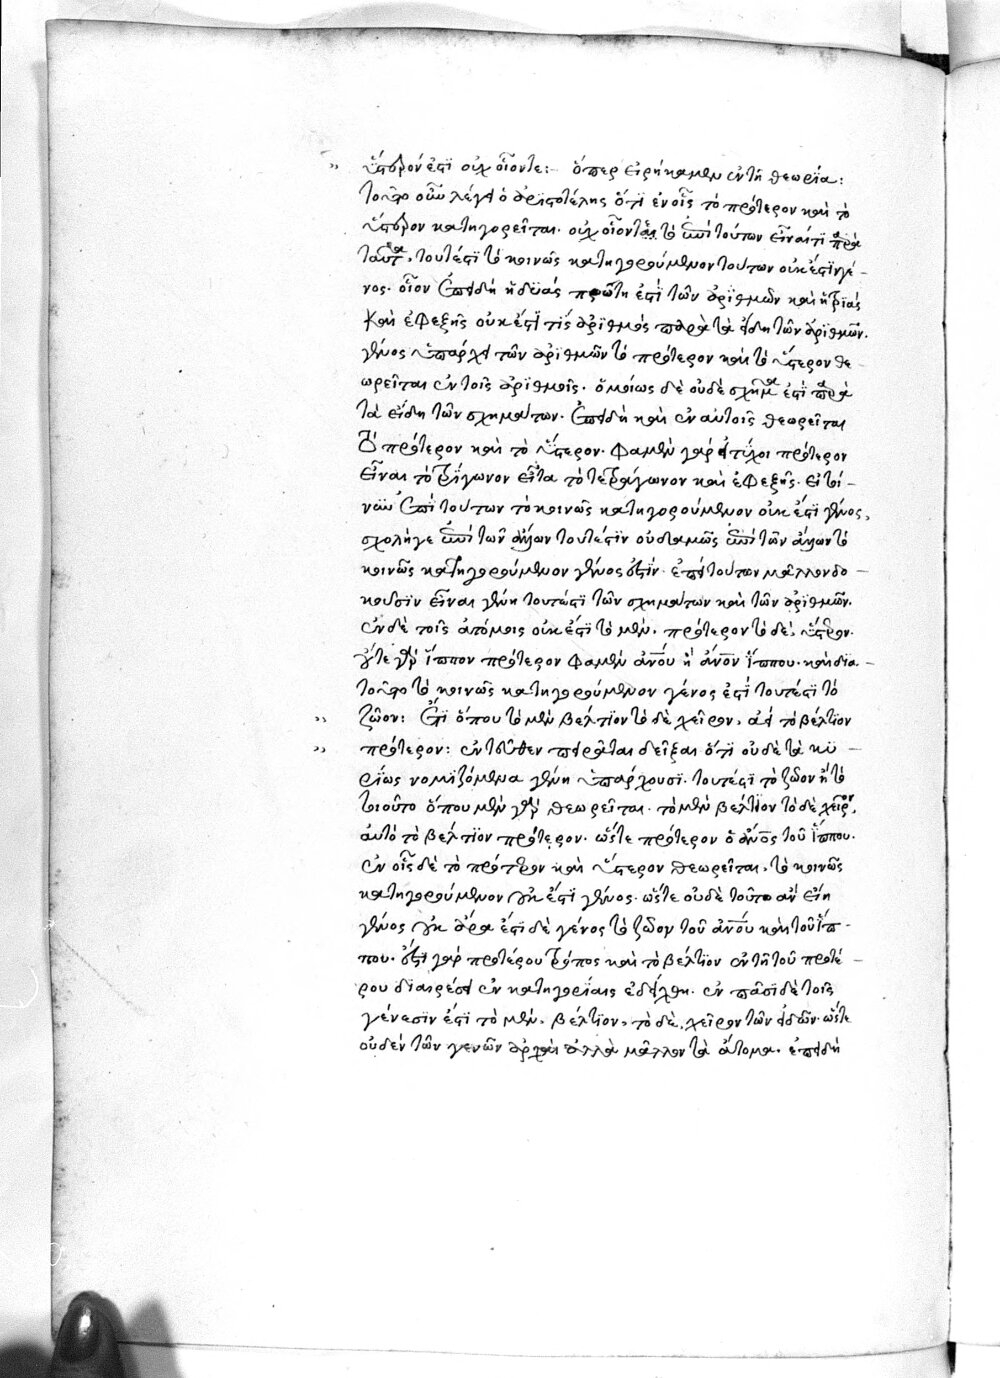 ὕστερόν ἐστι οὐχ οἷόν τε: ὅπερ εἰρήκαμεν ἐν τῇ θεωρία:
τοῦτο οὖν λέγει ὁ ἀριστοτέλης ὅτι ἐν οἷς τὸ πρότερον καὶ τὸ
ὕστερον κατηγορεῖται. οὐχ οἷόν τε τὸ ἐπὶ τούτων εἶναί τι παρὰ
ταῦτα, τουτέστι τὸ κοινῶς κατηγορούμενον τούτων οὐκ ἔστι γέ-
νος. οἷον ἐπειδὴ ἡ δυὰς πρώτη ἐστὶ τῶν ἀριθμῶν καὶ ἡ τριὰς
καὶ ἐφεξῆς οὐκ ἔστι τις ἀριθμὸς παρὰ τὰ εἴδη τῶν ἀριθμῶν.
γένος ὑπάρχει τῶν ἀριθμῶν τὸ πρότερον καὶ τὸ ὕστερον θε-
ωρεῖται ἐν τοῖς ἀριθμοῖς. ὁμοίως δὲ οὐδὲ σχῆμα ἐστὶ παρὰ
τὰ εἴδη τῶν σχημάτων. ἐπειδὴ καὶ ἐν αὐτοῖς θεωρεῖται
τὸ πρότερον καὶ τὸ ὕστερον. φαμὲν γὰρ εἰ τύχοι πρότερον
εἶναι τὸ τρίγωνον εἶτα τὸ τετράγωνον καὶ ἐφεξῆς. εἰ τοί-
νυν ἐπὶ τούτων τὸ κοινῶς κατηγορούμενον οὐκ ἔστι γένος,
σχολῇ γε ἐπὶ τῶν ἄλλων τουτέστιν οὐδαμῶς ἐπὶ τῶν ἄλλων τὸ
κοινῶς κατηγορούμενον γένος ἐστίν. ἐπεὶ τούτων μᾶλλον δο-
κοῦσιν εἶναι γένη τουτέστι τῶν σχημάτων καὶ τῶν ἀριθμῶν.
ἐν δὲ τοῖς ἀτόμοις οὐκ ἔστι τὸ μὲν, πρότερον τὸ δὲ, ὕστερον.
οὔτε γὰρ ἵππον πρότερον φαμὲν ἀνου ἢ ἀνον ἵππου. καὶ διὰ-
τοῦτο τὸ κοινῶς κατηγορούμενον γένος ἐστὶ τουτέστι τὸ
ζῶον: ἔτι ὅπου τὸ μὲν βέλτιον τὸ δὲ χεῖρον, ἀεὶ τὸ βέλτιον
πρότερον: ἐντεῦθεν πειρᾶται δεῖξαι ὅτι οὐδὲ τὰ κυ-
ρίως νομιζόμενα γένη ὑπάρχουσι. τουτέστι τὸ ζῶον ἢ τὸ
τοιοῦτο ὅπου μὲν γὰρ θεωρεῖται. τὸ μὲν βέλτιον τὸ δὲ χεῖρον,
αὐτὸ τὸ βέλτιον πρότερον. ὥστε πρότερον ὁ ἄνος τοῦ ἵππου.
ἐν οἷς δὲ τὸ πρότερον καὶ ὕστερον θεωρεῖται, τὸ κοινῶς
κατηγορούμενον οὐκ ἔστι γένος. ὥστε οὐδὲ τοῦτο ἂν εἴη
γένος οὐκ ἄρα ἐστι δὲ γένος τὸ ζῶον τοῦ ἀνου καὶ τοῦ ἵπ-
που. ἔστι γὰρ προτέρου τρόπος καὶ τὸ βέλτιον ἐν τῇ τοῦ προτέ-
ρου διαιρέσει ἐν κατηγορίαις ἐδείχθη. ἐν πᾶσι δὲ τοῖς
γένεσιν ἐστὶ τὸ μὲν, βέλτιον, τὸ δὲ, χεῖρον τῶν εἰδῶν. ὥστε
οὐδὲν τῶν γενῶν ἀρχαὶ ἀλλὰ μᾶλλον τὰ ἄτομα. ἐπειδὴ